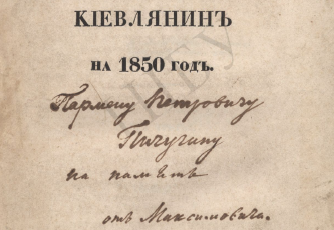 КІЕВЛЯНИНЪ
НА 1850 ГОДЪ.
Пармену Петровичу
Пичугину
на память
отъ Максимовича.